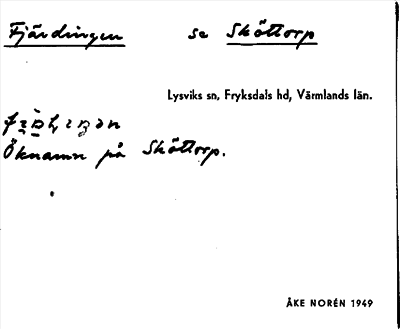 Fjärdingen se Sköttorp
Lysviks sn, Fryksdals hd, Värmlands län.
Öknamn på Sköttorp.
ÅKE NORÉN 1949